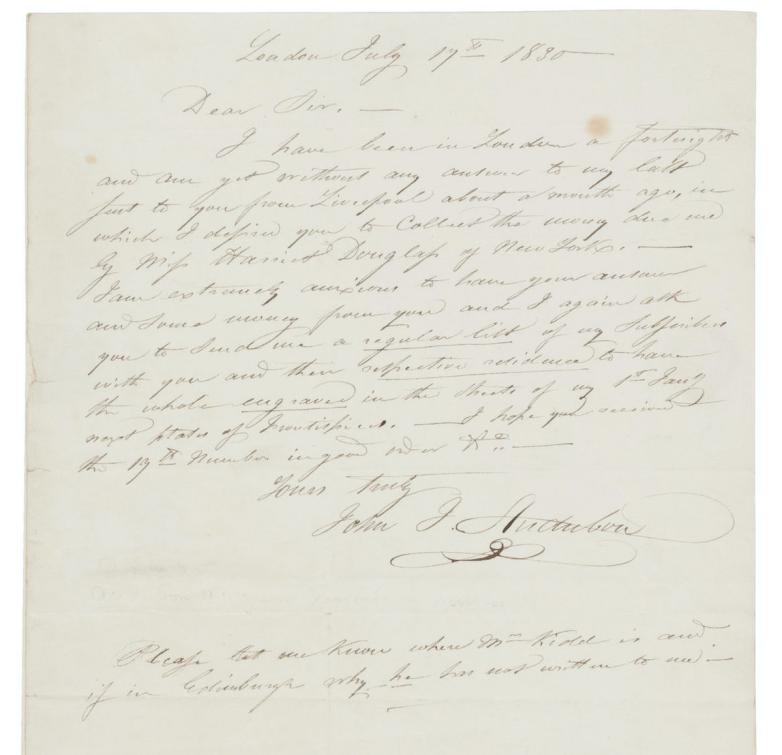 London July 17th 1830 —
Dear Sir. —
I have been in London a fortnight
and am yet without any answer to my last
sent to you from Liverpool about a month ago, in
which I desired you to Collect the money due me
by Miss Harriet Douglass of New York. —
I am extremely anxious to have your answer
and some money from you and I again ask
you to send me a regular list of my Subscribers
with you and their respective residence to have
the whole engraved in the sheets of my 1st Jany
next plates of frontispiece. — I hope you received
the 19th Number in good order &c. —
Yours truly
John J. Audubon
Please let me Know where Mr Kidd is and
if in Edinburgh why he has not written to me —